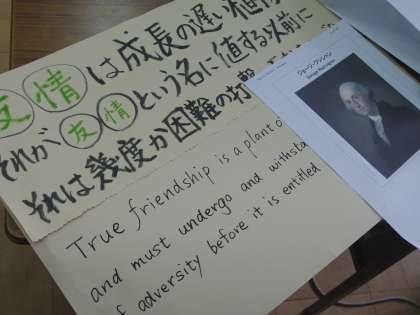 友情は成長の遅い植
それが友情という名に値する以前に
それは幾度か困難の打撃
True friendship is a plant o
and must undergo and withsta
f adversity before it is entitled
ジョージ・ワシントン
George Washington